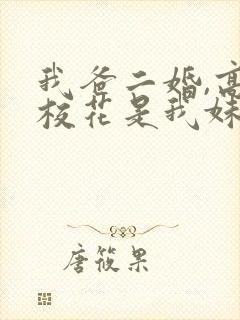 我爸二婚,高
校花是我妹
唐筱果